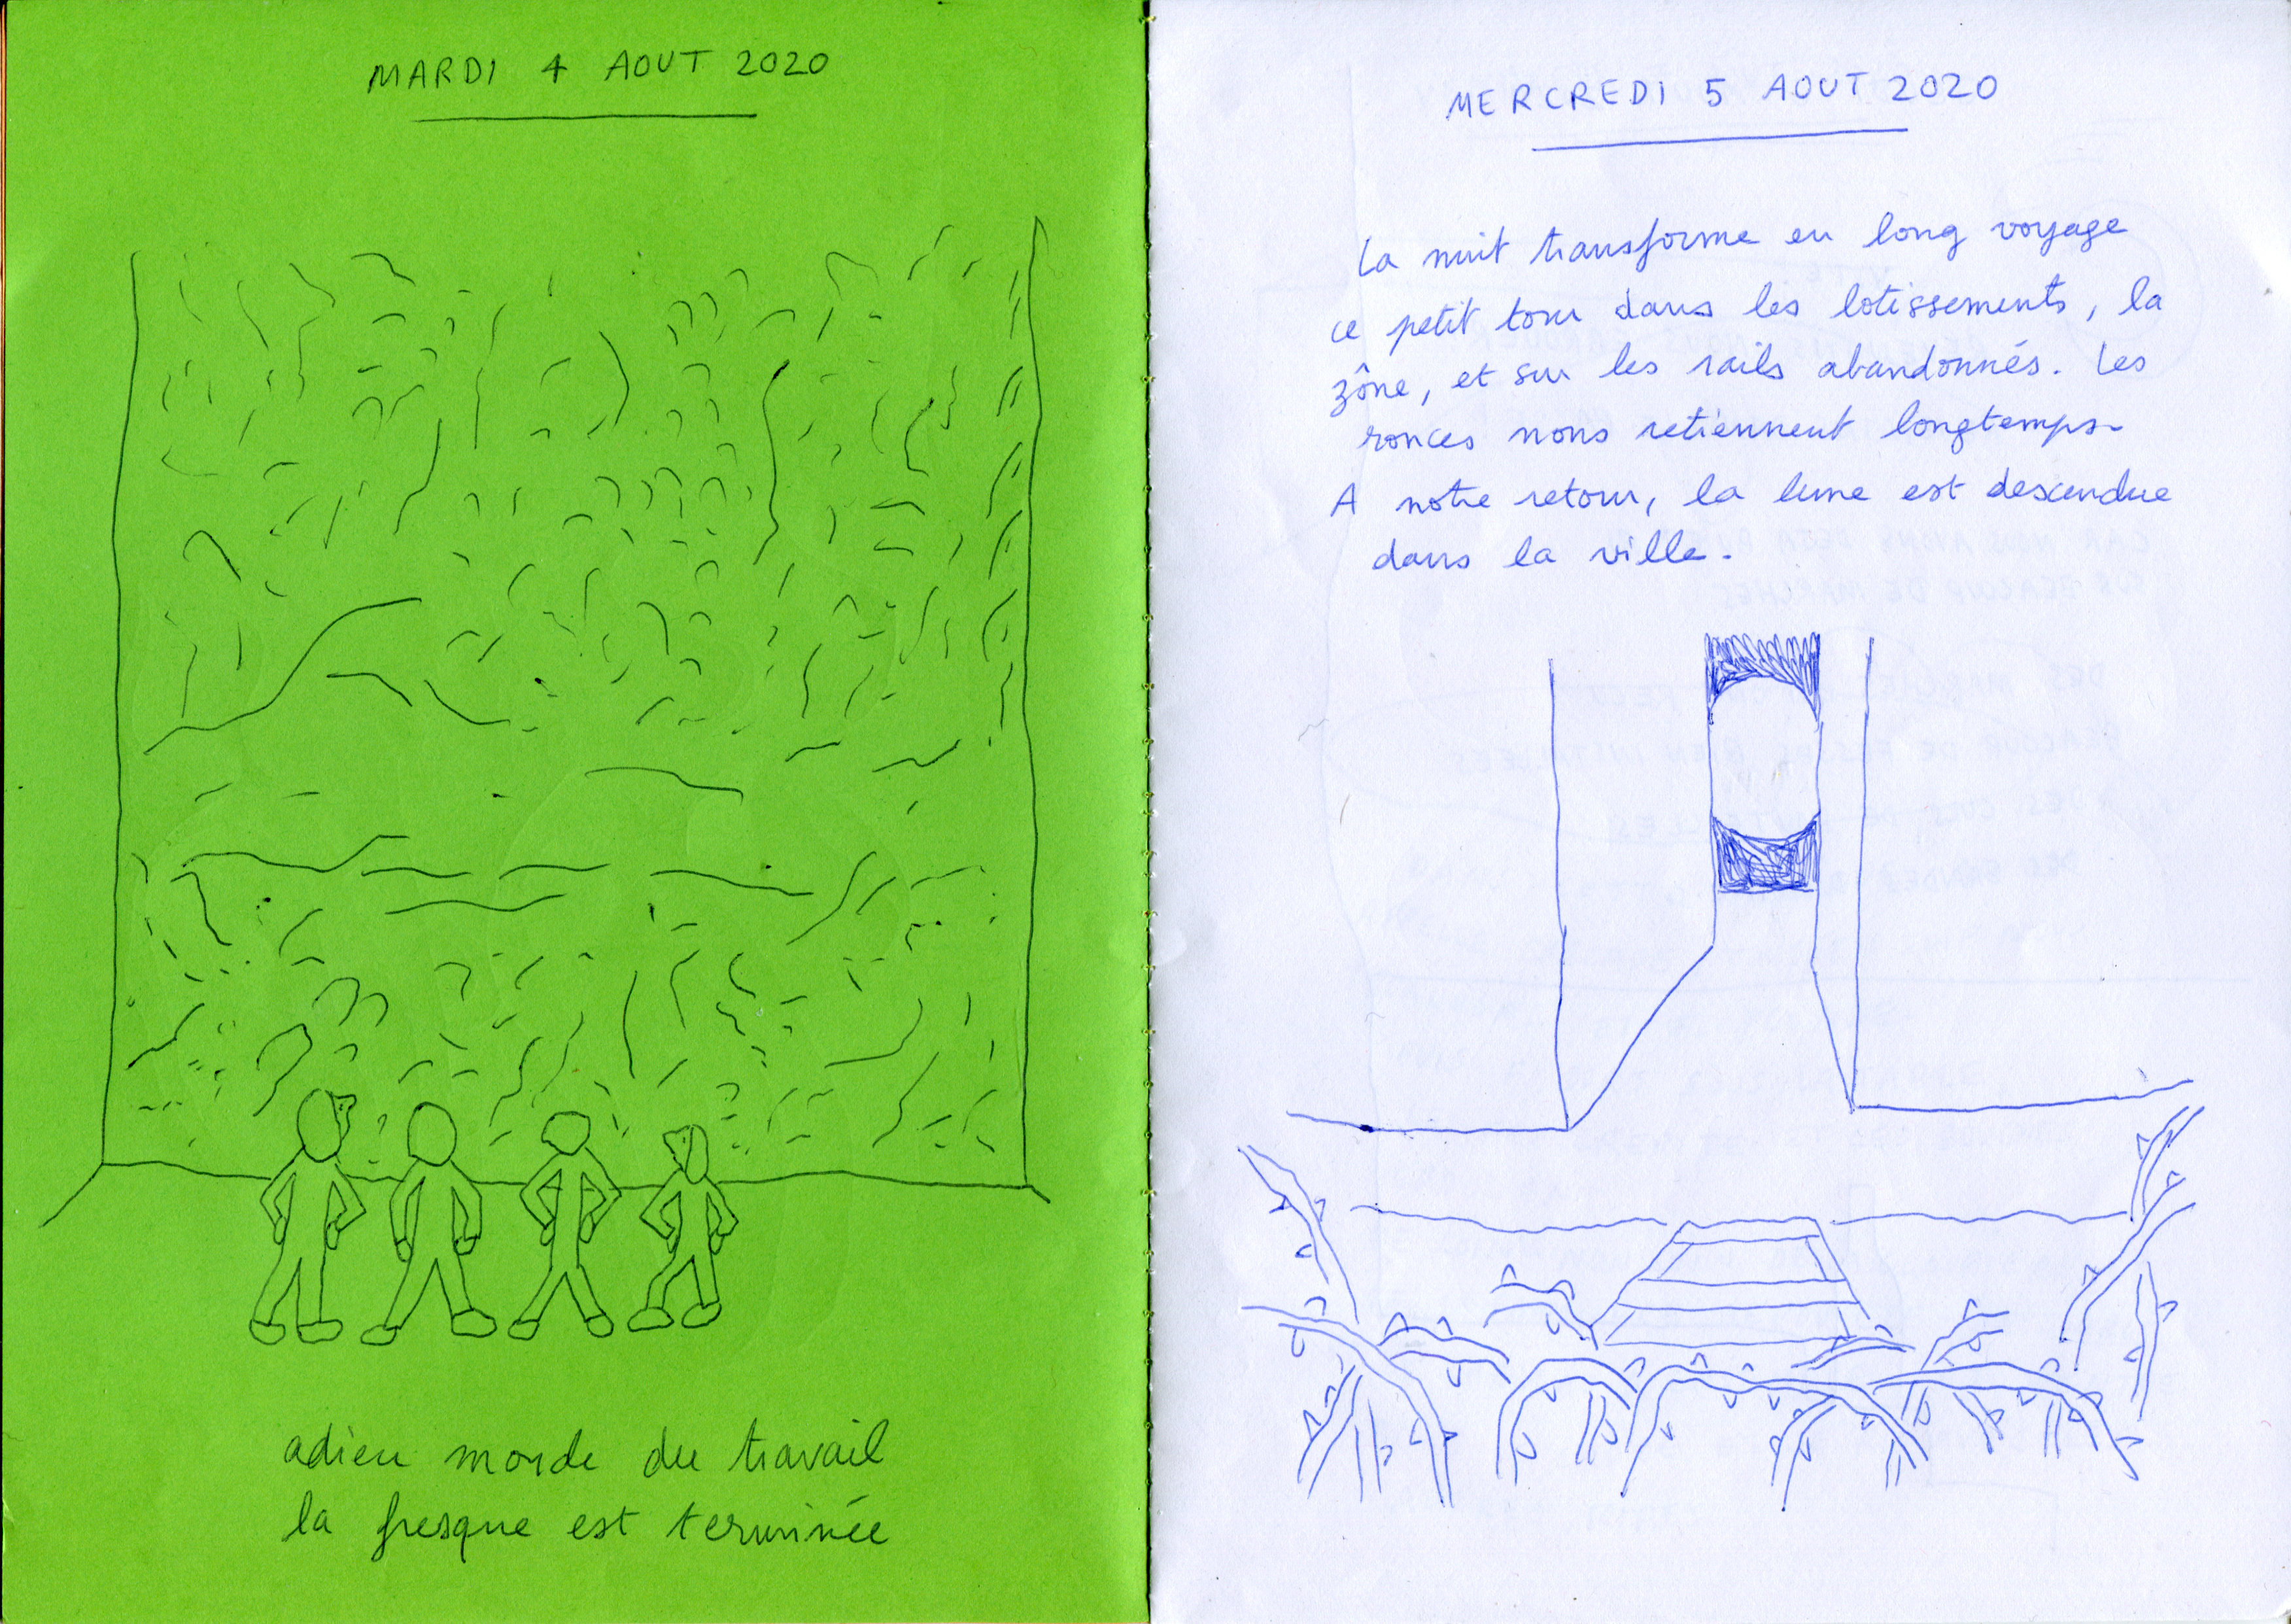 MARDI 4 AOUT 2020
adieu monde du travail
la fresque est terminée
MERCREDI 5 AOUT 2020
La nuit transforme en long voyage
ce petit tour dans les lotissements, la
zône, et sur les rails abandonnés. Les
ronces nous retiennent longtemps.
A notre retour, la lune est descendue
dans la ville.